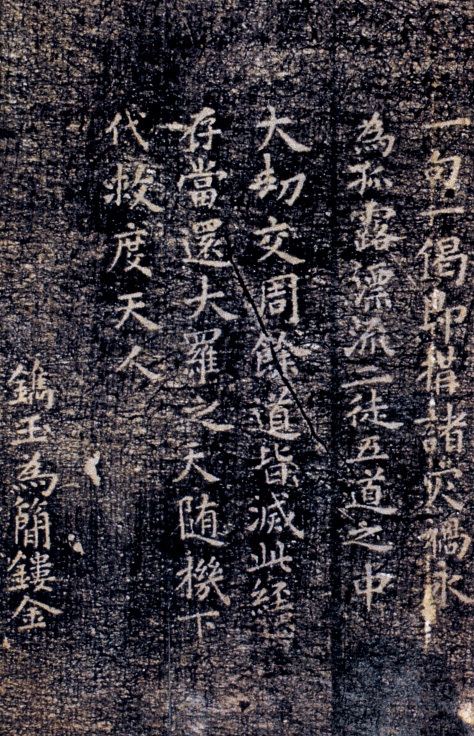 一句一偈即椎諸灾禍永
為孤露漂流二徒五道之中
大劫交周餘道皆滅此經
存當還大羅之天随機下
代救度天人
鐫玉為簡鏤金